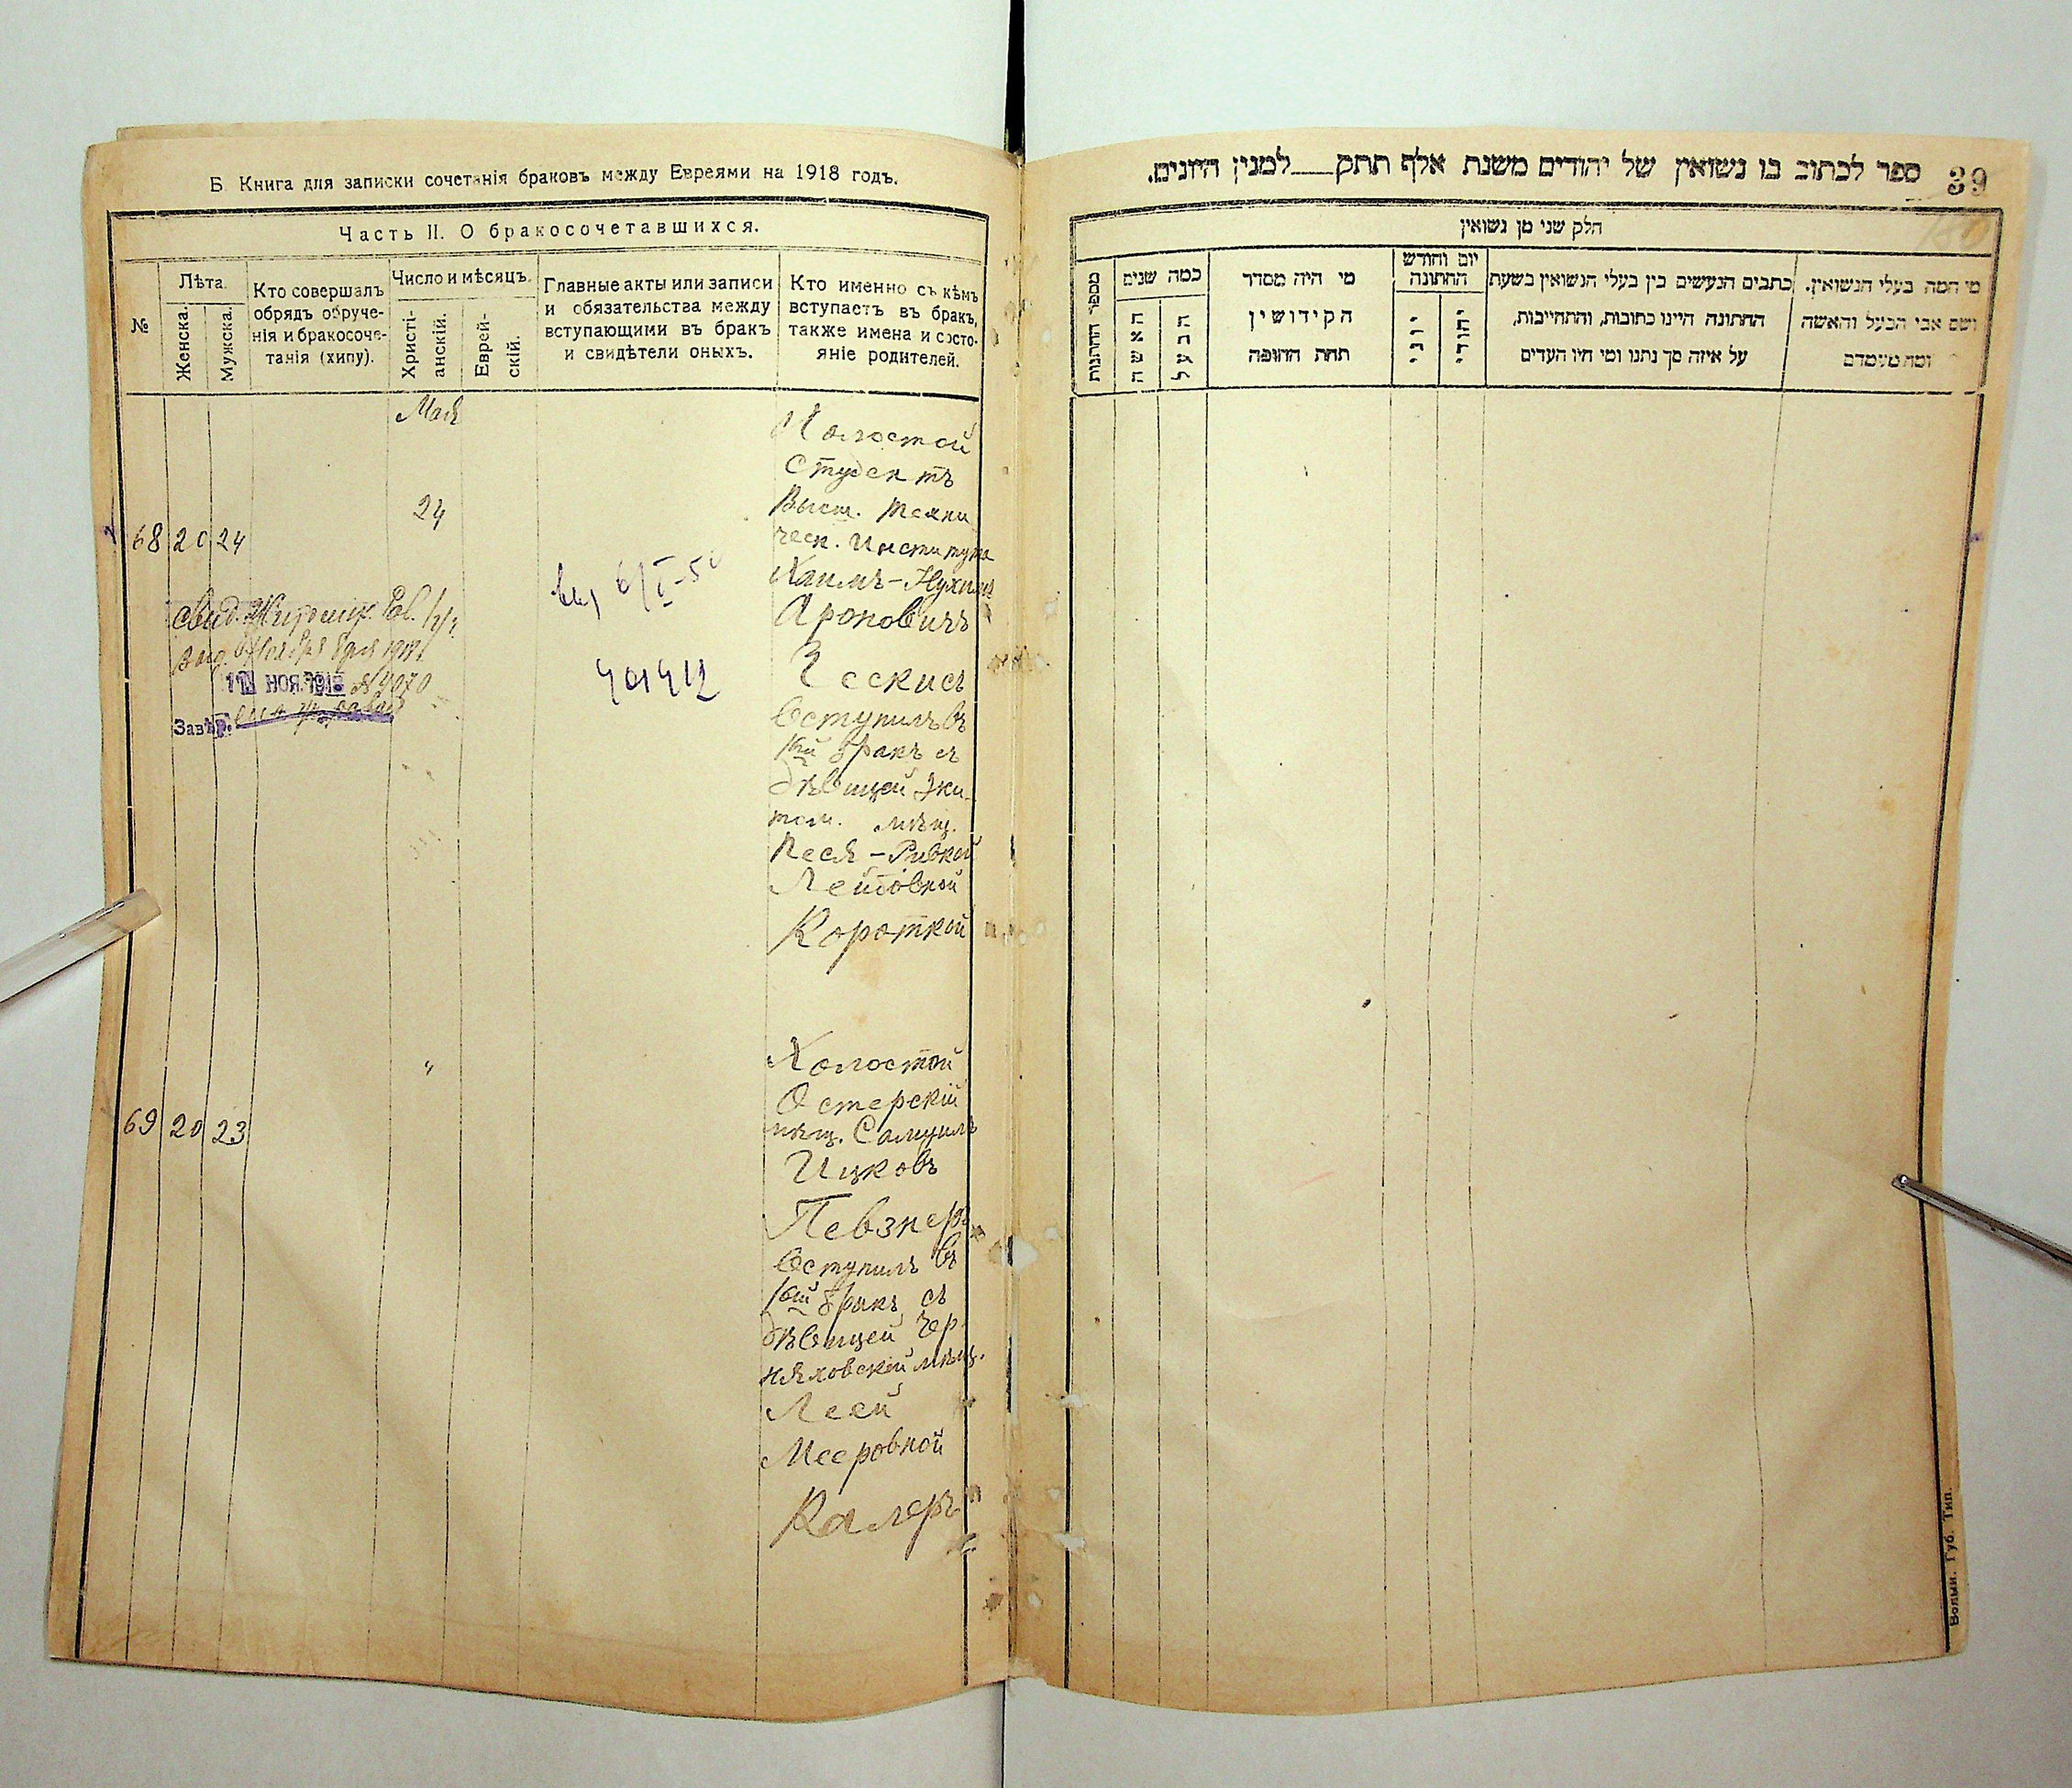 Б. Книга для записки сочетанія браковъ между Евреями на 1918 годъ.
Часть II. О бракосочетавшихся.
№
Лѣта.
Женска.
Мужска.
Кто совершалъ
обрядъ обруче-
нія и бракосоче-
танія (хипу).
Число и мѣсяцъ.
Христі-
анскій.
Еврей-
скій.
Главные акты или записи
и обязательства между
вступающими въ бракъ
и свидѣтели оныхъ.
Кто именно съ кѣмъ
вступаетъ въ бракъ,
также имена и состо-
яніе родителей.
Мая
68 20 24
24
Холостой
Студентъ
Высш. Техни
ческ. Института
Хаимъ-Нухимъ
Ароновичъ
Ческисъ
вступилъ въ
1ый бракъ съ
дѣвицей Жи-
том. мѣщ.
Песя-Ривкой
Лейбовной
Короткой
Свид. Житомір.
1918
НОЯ. 1918 № 4070
Завѣр.
401412
69 20 23
"
Холостой
Остерскій
мѣщ. Самуилъ
Ицковъ
Певзнеръ
вступилъ въ
1ый бракъ съ
дѣвицей Чер-
няховской мѣщ.
Леей
Мееровной
Калеръ
39
ספר לכתוב בו נשואין של יהודים משנת אלף תתק___למנין היונים.
חלק שני מן נשואין
מספר החתונות
כמה שנים
האשה
הבעל
מי היה מסדר
הקידושין
תחת החופה
יום וחודש
החתונה
יוני
יהודי
כתבים הנעשים בין בעלי הנשואין בשעת
החתונה היינו כתובות, והתחייבות,
על איזה סך נתנו ומי היו העדים
מי המה בעלי הנשואין.
ושם אבי הבעל והאשה
ומה מעמדם
Волын. Губ. Тип.